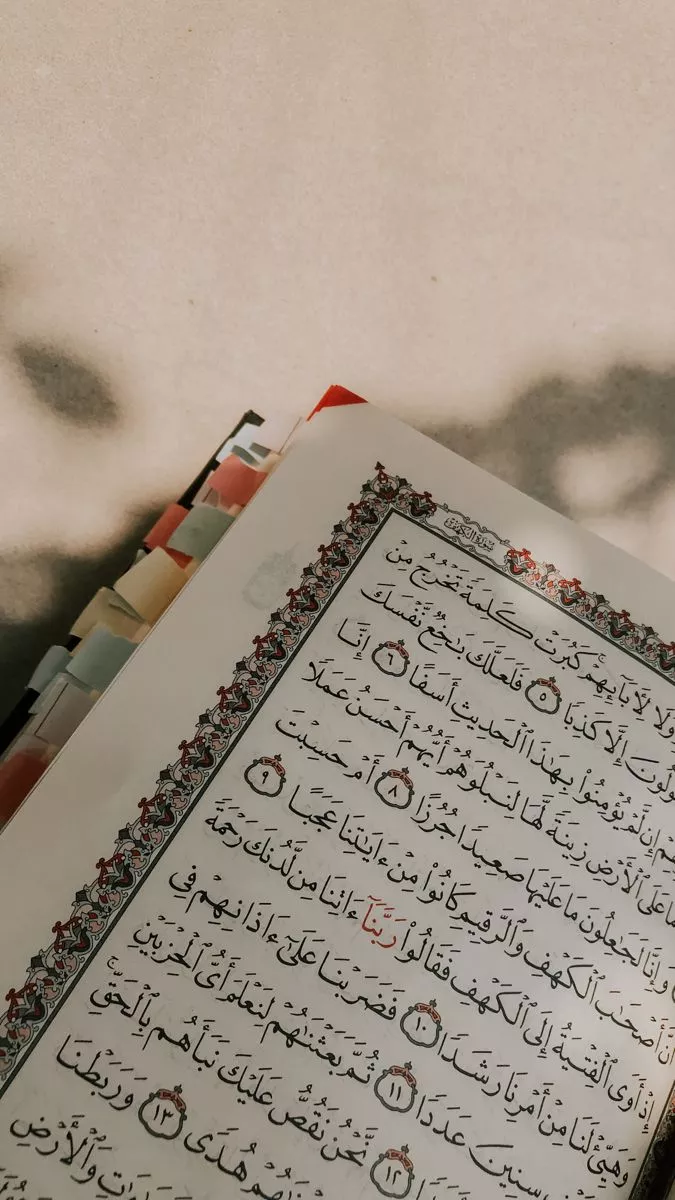 سُورَةُ الْكَهْفِ
وَلَا لِأٓبَآئِهِمْۚ كَبُرَتْ كَلِمَةً تَخْرُجُ مِنْ
إِلَّا كَذِبًا ٥ فَلَعَلَّكَ بَٰخِعٌ نَّفْسَكَ
إِن لَّمْ يُؤْمِنُوا۟ بِهَٰذَا ٱلْحَدِيثِ أَسَفًا ٦ إِنَّا
مَا عَلَى ٱلْأَرْضِ زِينَةً لَّهَا لِنَبْلُوَهُمْ أَيُّهُمْ أَحْسَنُ عَمَلًا
وَإِنَّا لَجَٰعِلُونَ مَا عَلَيْهَا صَعِيدًا جُرُزًا ٨ أَمْ حَسِبْتَ
أَنَّ أَصْحَٰبَ ٱلْكَهْفِ وَٱلرَّقِيمِ كَانُوا۟ مِنْ ءَايَٰتِنَا عَجَبًا ٩
إِذْ أَوَى ٱلْفِتْيَةُ إِلَى ٱلْكَهْفِ فَقَالُوا۟ رَبَّنَآ ءَاتِنَا مِن لَّدُنكَ رَحْمَةً
وَهَيِّئْ لَنَا مِنْ أَمْرِنَا رَشَدًا ١٠ فَضَرَبْنَا عَلَىٰٓ ءَاذَانِهِمْ فِى
سِنِينَ عَدَدًا ١١ ثُمَّ بَعَثْنَٰهُمْ لِنَعْلَمَ أَىُّ ٱلْحِزْبَيْنِ
١٢ نَّحْنُ نَقُصُّ عَلَيْكَ نَبَأَهُم بِٱلْحَقِّۚ
هُدًى ١٣ وَرَبَطْنَا
وَٱلْأَرْضِ